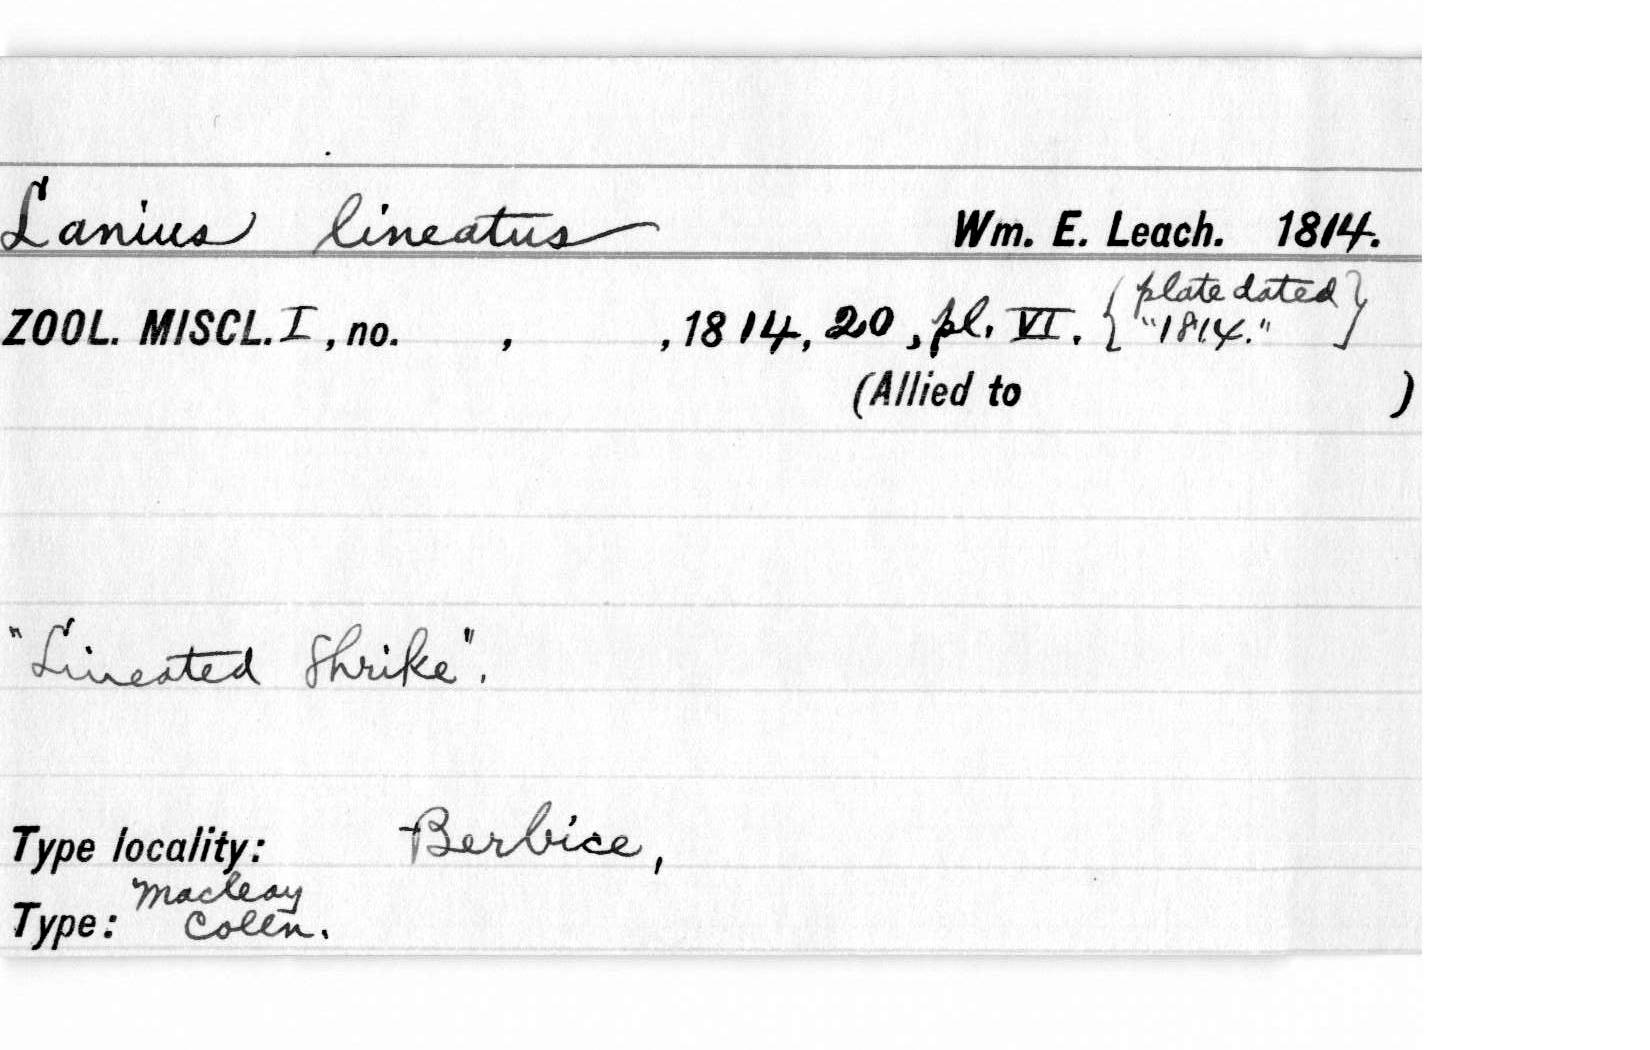 Lanius lineatus Wm. E. Leach. 1814.
ZOOL. MISCL. I, no. , , 1814, 20, pl. VI. {plate dated "1814."}
(Allied to )
"Lineated Shrike".
Type locality: Berbice,
Type: Macleay Colln.